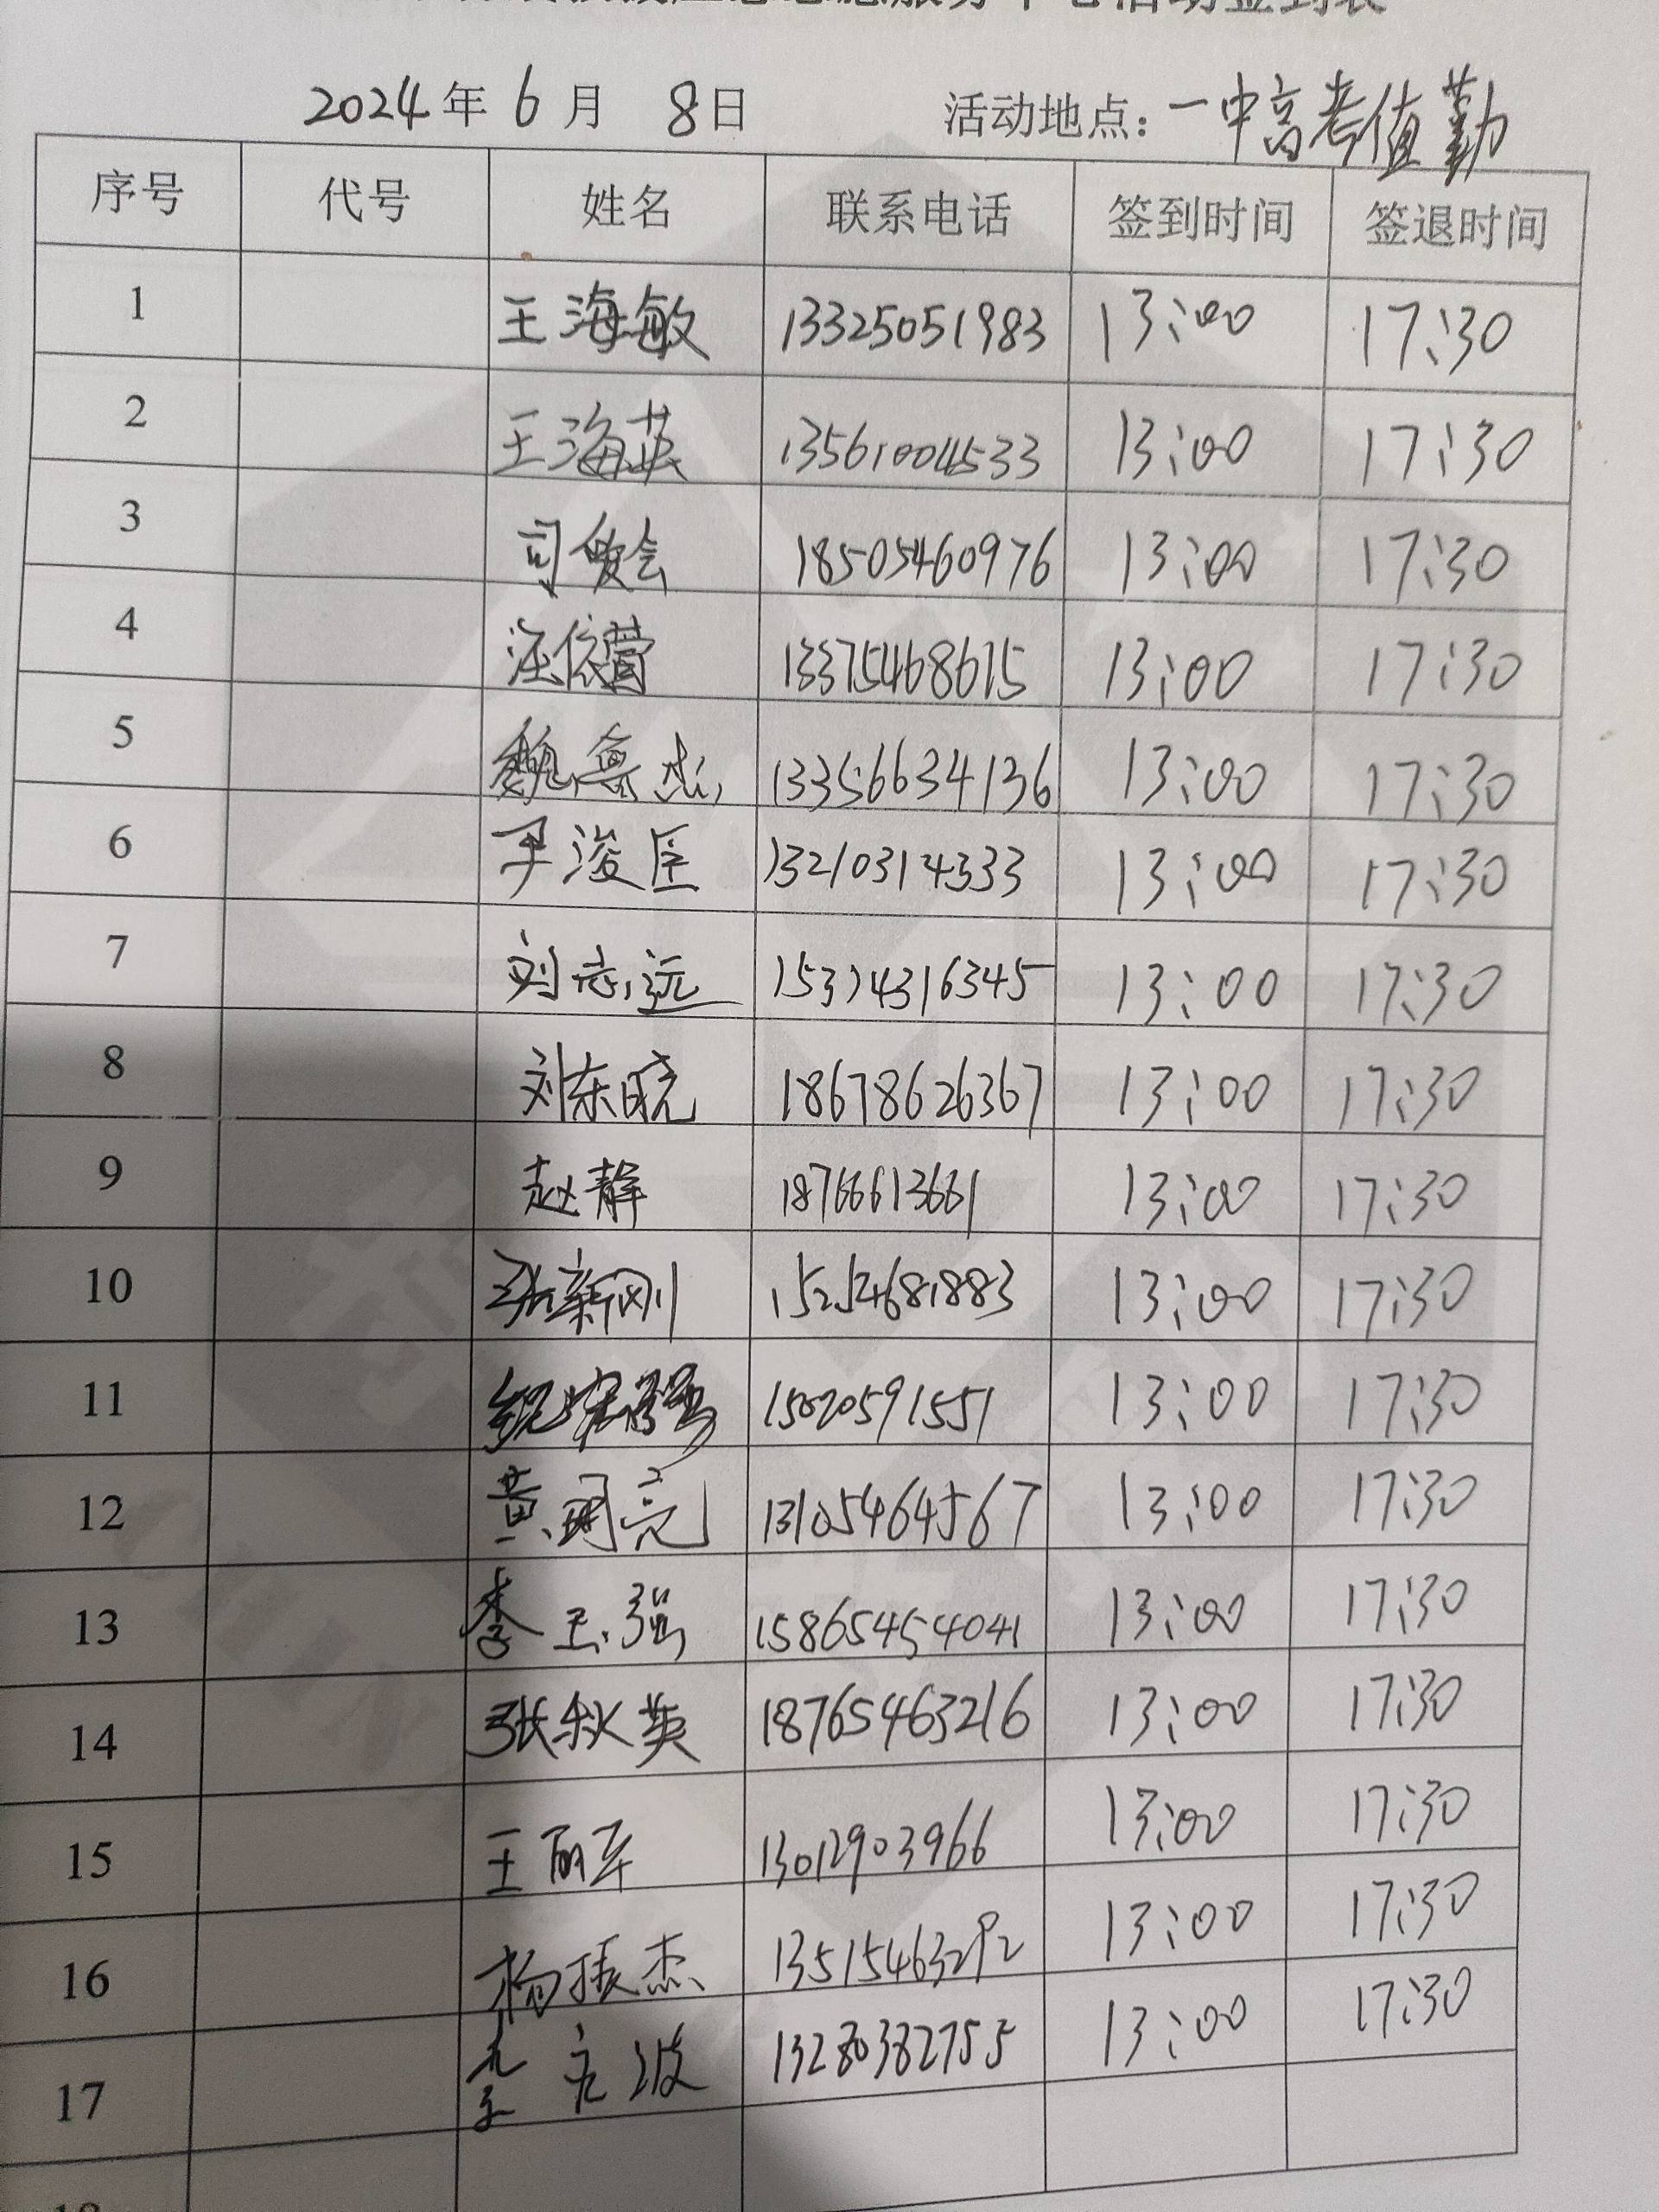 服务中心活动签到表
2024年 6月 8日 活动地点: 一中高考值勤
序号 代号 姓名 联系电话 签到时间 签退时间
1 王海敏 13325051983 13:00 17:30
2 王海英 13561004533 13:00 17:30
3 司俊会 18505460976 13:00 17:30
4 汪依营 13375468615 13:00 17:30
5 魏鲁杰 13356634136 13:00 17:30
6 尹浚臣 13210314333 13:00 17:30
7 刘志远 15374316345 13:00 17:30
8 刘东晓 18678626367 13:00 17:30
9 赵静 18766613661 13:00 17:30
10 张新刚 15254681883 13:00 17:30
11 15020591551 13:00 17:30
12 黄明亮 13105464567 13:00 17:30
13 李玉强 15865454041 13:00 17:30
14 张秋英 18765463216 13:00 17:30
15 王丽军 13012903966 13:00 17:30
16 杨振杰 13515463292 13:00 17:30
17 13280382755 13:00 17:30